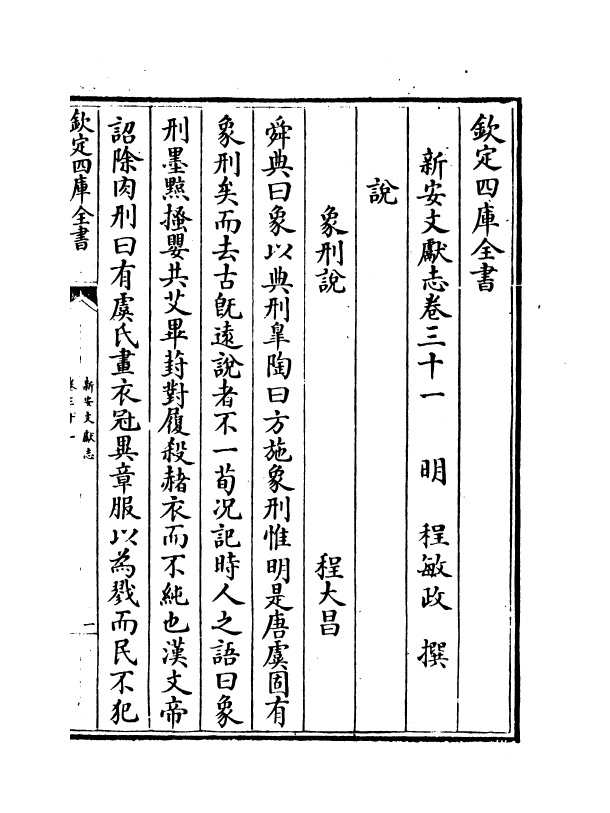 欽定四庫全書
新安文獻志卷三十一 明 程敏政 撰
說
象刑說 程大昌
舜典曰象以典刑臯陶曰方施象刑惟明是唐虞固有
象刑矣而去古旣遠說者不一荀况記時人之語曰象
刑墨黥搔嬰共艾畢葑對履殺赭衣而不純也漢文帝
詔除肉刑曰有虞氏畫衣冠異章服以為戮而民不犯
欽定四庫全書
新安文獻志
卷三十一
一